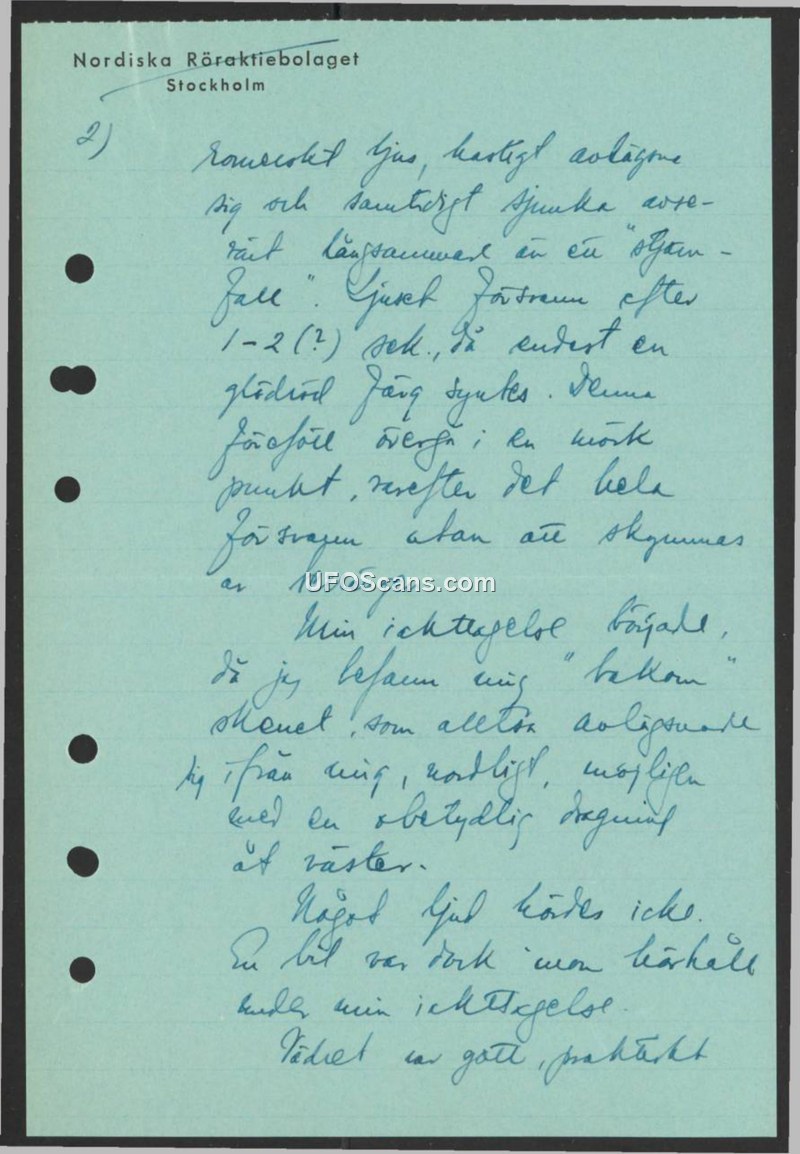 Nordiska Röraktiebolaget
Stockholm
2)
romerskt ljus, hastigt avlägsna
sig och samtidigt sjunka avse-
värt långsammare än ett "stjärn-
fall". Ljuset försvann efter
1-2 (?) sek., då endast en
glödröd färg syntes. Denna
föreföll övergå i en mörk
punkt, varefter det hela
försvann utan att skymmas
av
UFOScans.com
Min iakttagelse började,
då jag befann mig "bakom"
skenet, som alltså avlägsnade
sig ifrån mig, nordligt, möjligen
med en obetydlig dragning
åt väster.
Något ljud hördes icke.
En bil var dock inom hörhåll
under min iakttagelse.
Vädret var gott, praktiskt